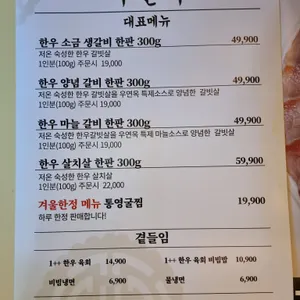 대표메뉴
한우 소금 생갈비 한판 300g 49,900
저온 숙성한 한우 갈빗살
1인분(100g) 주문시 19,000
한우 양념 갈비 한판 300g 49,900
저온 숙성한 한우 갈빗살을 우연옥 특제소스로 양념한 갈빗살
1인분(100g) 주문시 19,000
한우 마늘 갈비 한판 300g 49,900
저온 숙성한 한우갈빗살을 우연옥 특제 마늘소스로 양념한 갈빗살
1인분(100g) 주문시 19,000
한우 살치살 한판 300g 59,900
저온 숙성한 한우 살치살
1인분(100g) 주문시 22,000
겨울한정 메뉴 통영굴찜 19,900
하루 한정 판매합니다!
곁들임
1++ 한우 육회 14,900 1++ 한우 육회 비빔밥 10,900
비빔냉면 6,900 물냉면 6,900